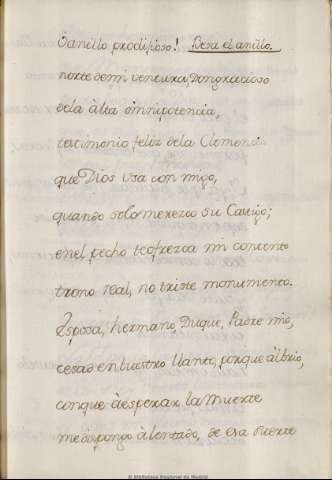 O anillo prodijioso! Besa el anillo.
norte de mi ventura, Don gracioso
dela àlta omnipotencia,
testimonio feliz dela Clemencia
que Dios usa con migo,
quando solo merezco su Castigo;
enel pecho te ofrezca mi contento
trono real, no triste monumento.
Esposa, hermano, Duque, Padre mio,
cesad en buestro llanto, porque àl brio,
con que à esperar la muerte
me dispongo àlentado, de esa suerte
© Biblioteca Regional de Madrid